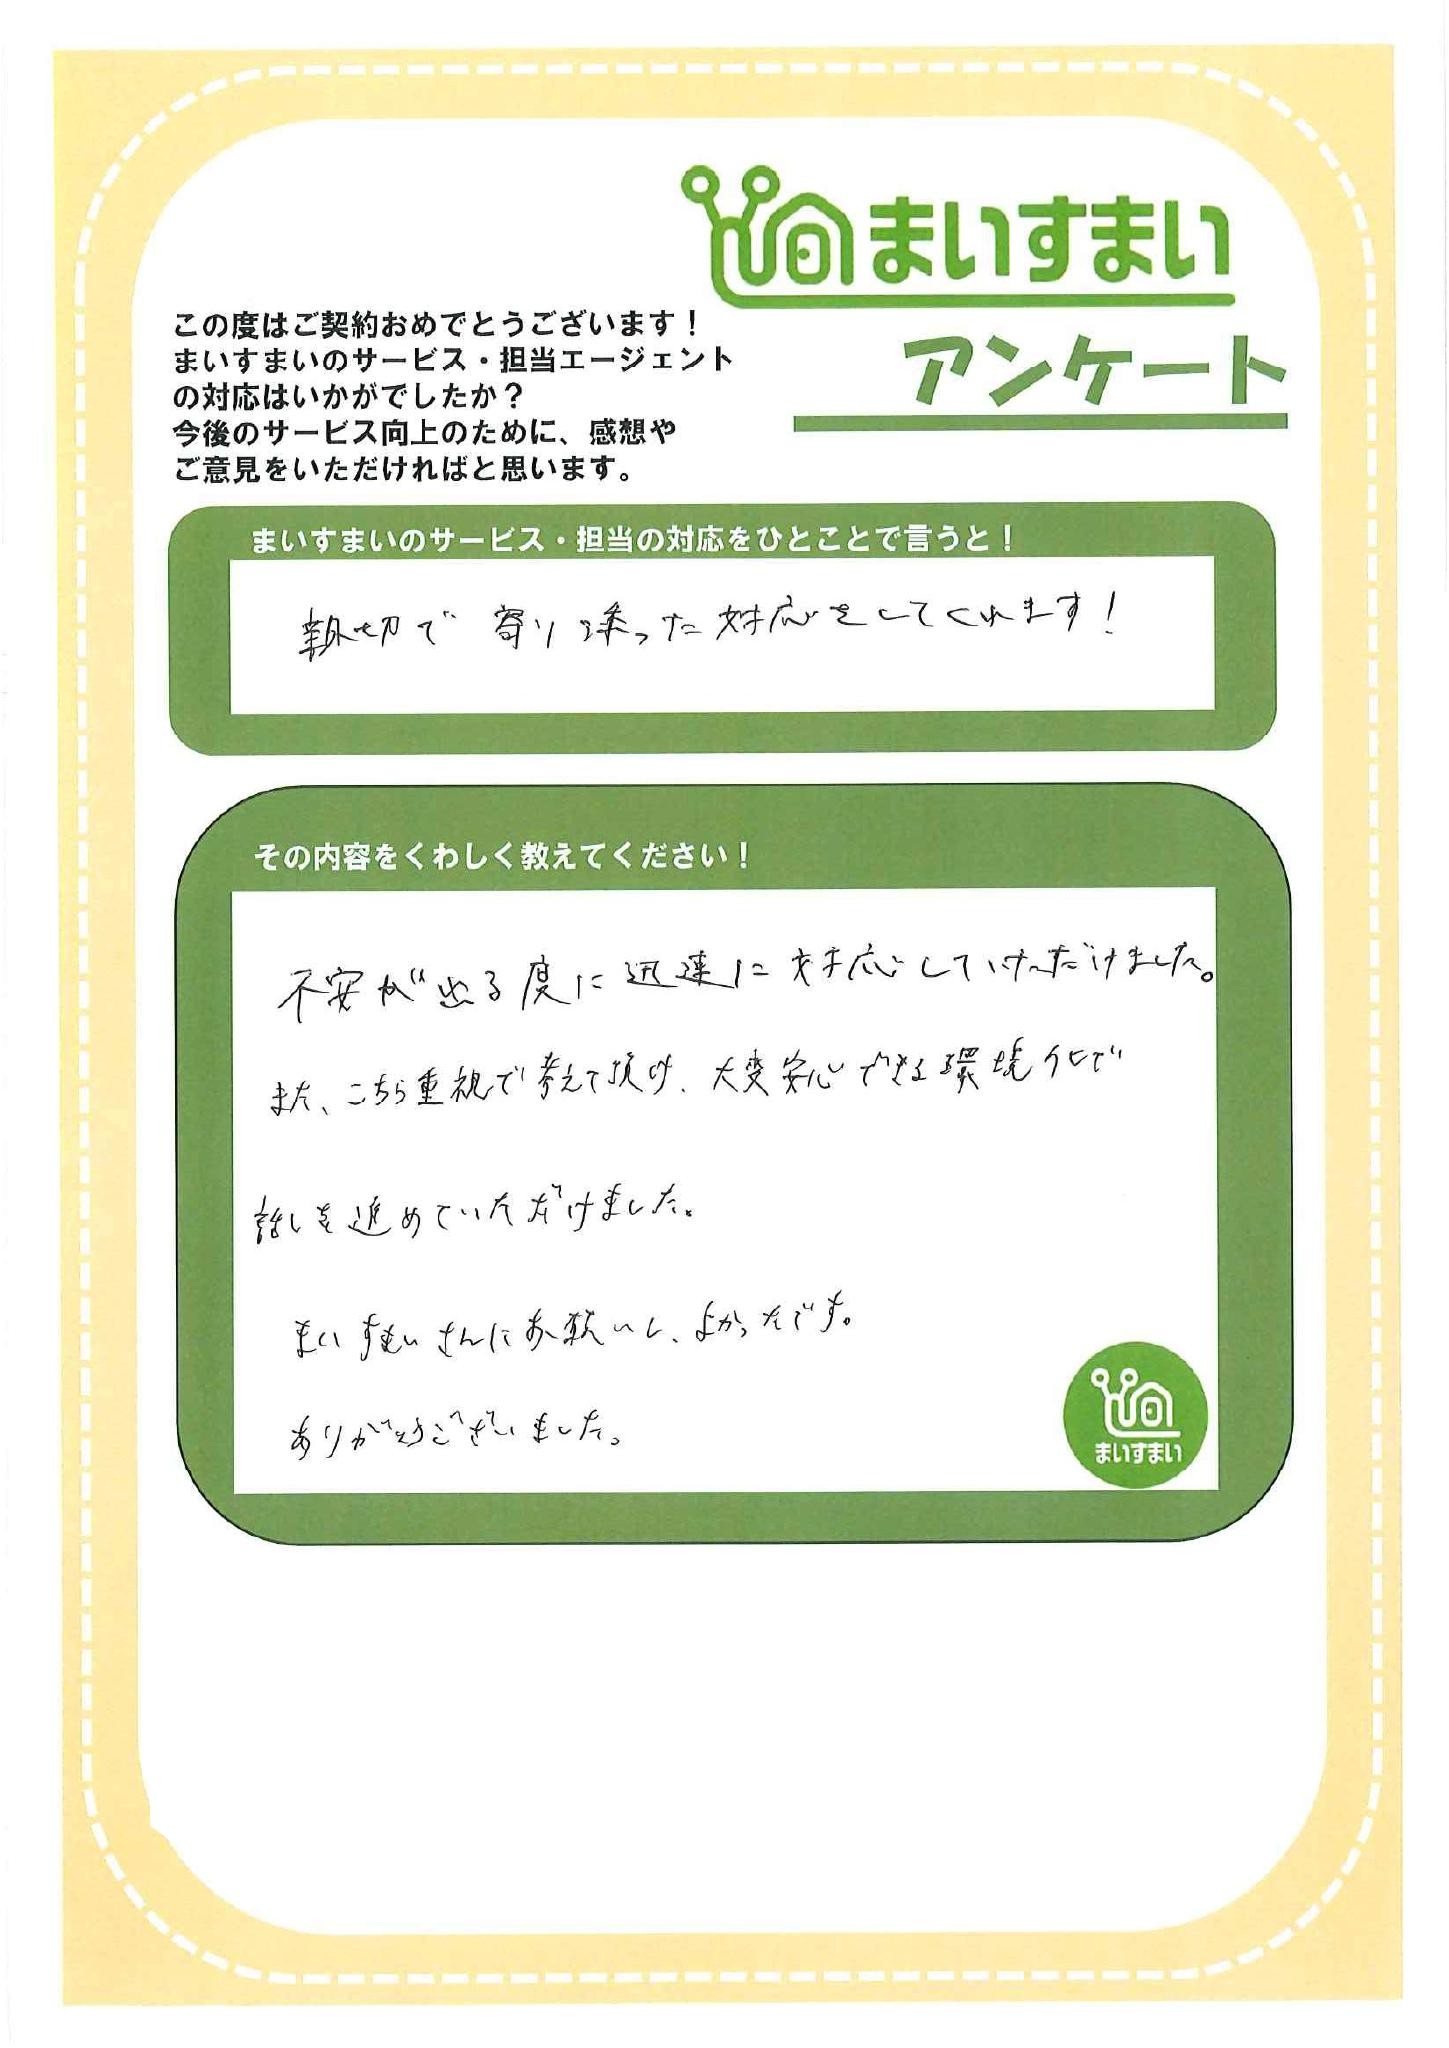 まいすまい
アンケート
この度はご契約おめでとうございます！
まいすまいのサービス・担当エージェント
の対応はいかがでしたか？
今後のサービス向上のために、感想や
ご意見をいただければと思います。
まいすまいのサービス・担当の対応をひとことで言うと！
親切で寄り添った対応をしてくれます！
その内容をくわしく教えてください！
不安が出る度に迅速に対応していただけました。
また、こちら重視で考えて頂け、大変安心できる環境化で
話しを進めていただけました。
まいすまいさんにお願いし、よかったです。
ありがとうございました。
まいすまい